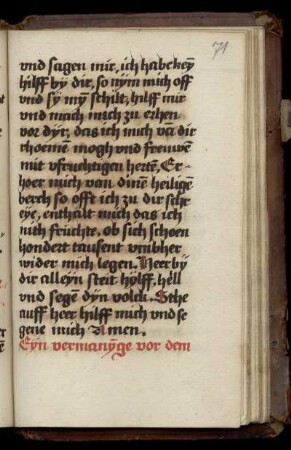 71
vnd sagen mir, ich habe keÿ̄
hilff bÿ dir, so nÿm mich off
vnd sÿ mÿ̄ schilt, hilff mir
vnd mach mich zu erhen
vor dÿr, das ich mich vā dir
rhoemē mogh vnd freuwen
mit vfruchtigen herten, Er-
hoer mich van dinē heiligē
berch so offt ich zu dir schr
eÿe, enthalt mich das ich
nith fruchte, ob sich schoen
hondert tausent vmbher
wider mich legen. Heer bÿ
dir alleÿn steit hÿlff, hēll
vnd segē dÿn volck. Sthe
auff heer hilff mich vnd se
gene mich Amen.
Eÿn vermanÿ̄ge vor dem